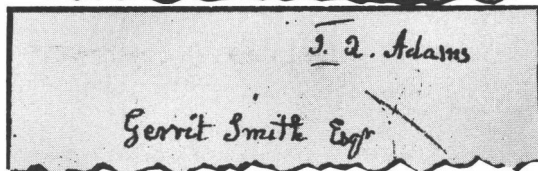 J. Q. Adams
Gerrit Smith Esqr